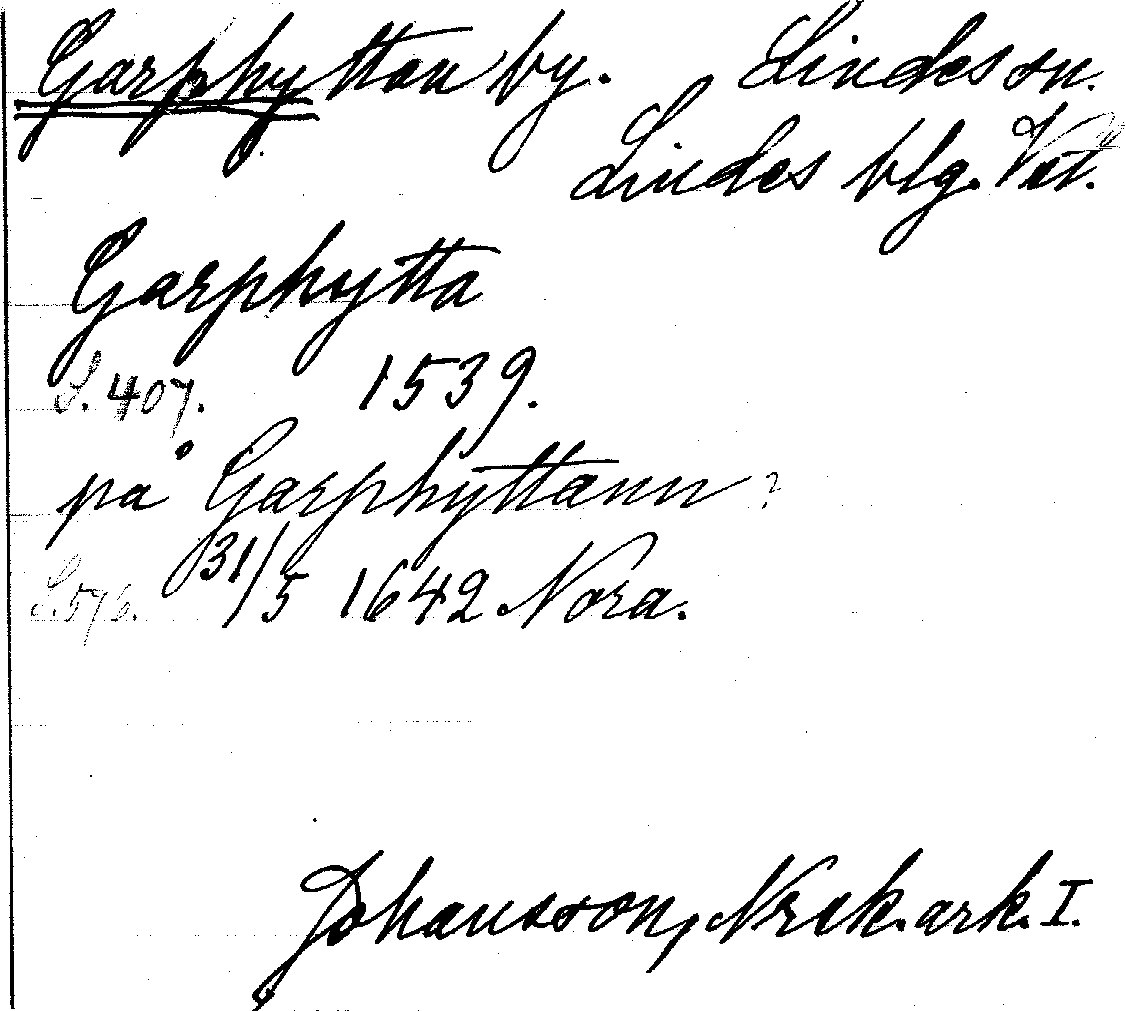 Garphyttan by. Lindes sn.
Lindes blg. Vstl.
Garphytta
S. 407. 1539.
på Garphyttann ?
S. 576. 31/5 1642 Nora.
Johansson, Nrek. ark. I.